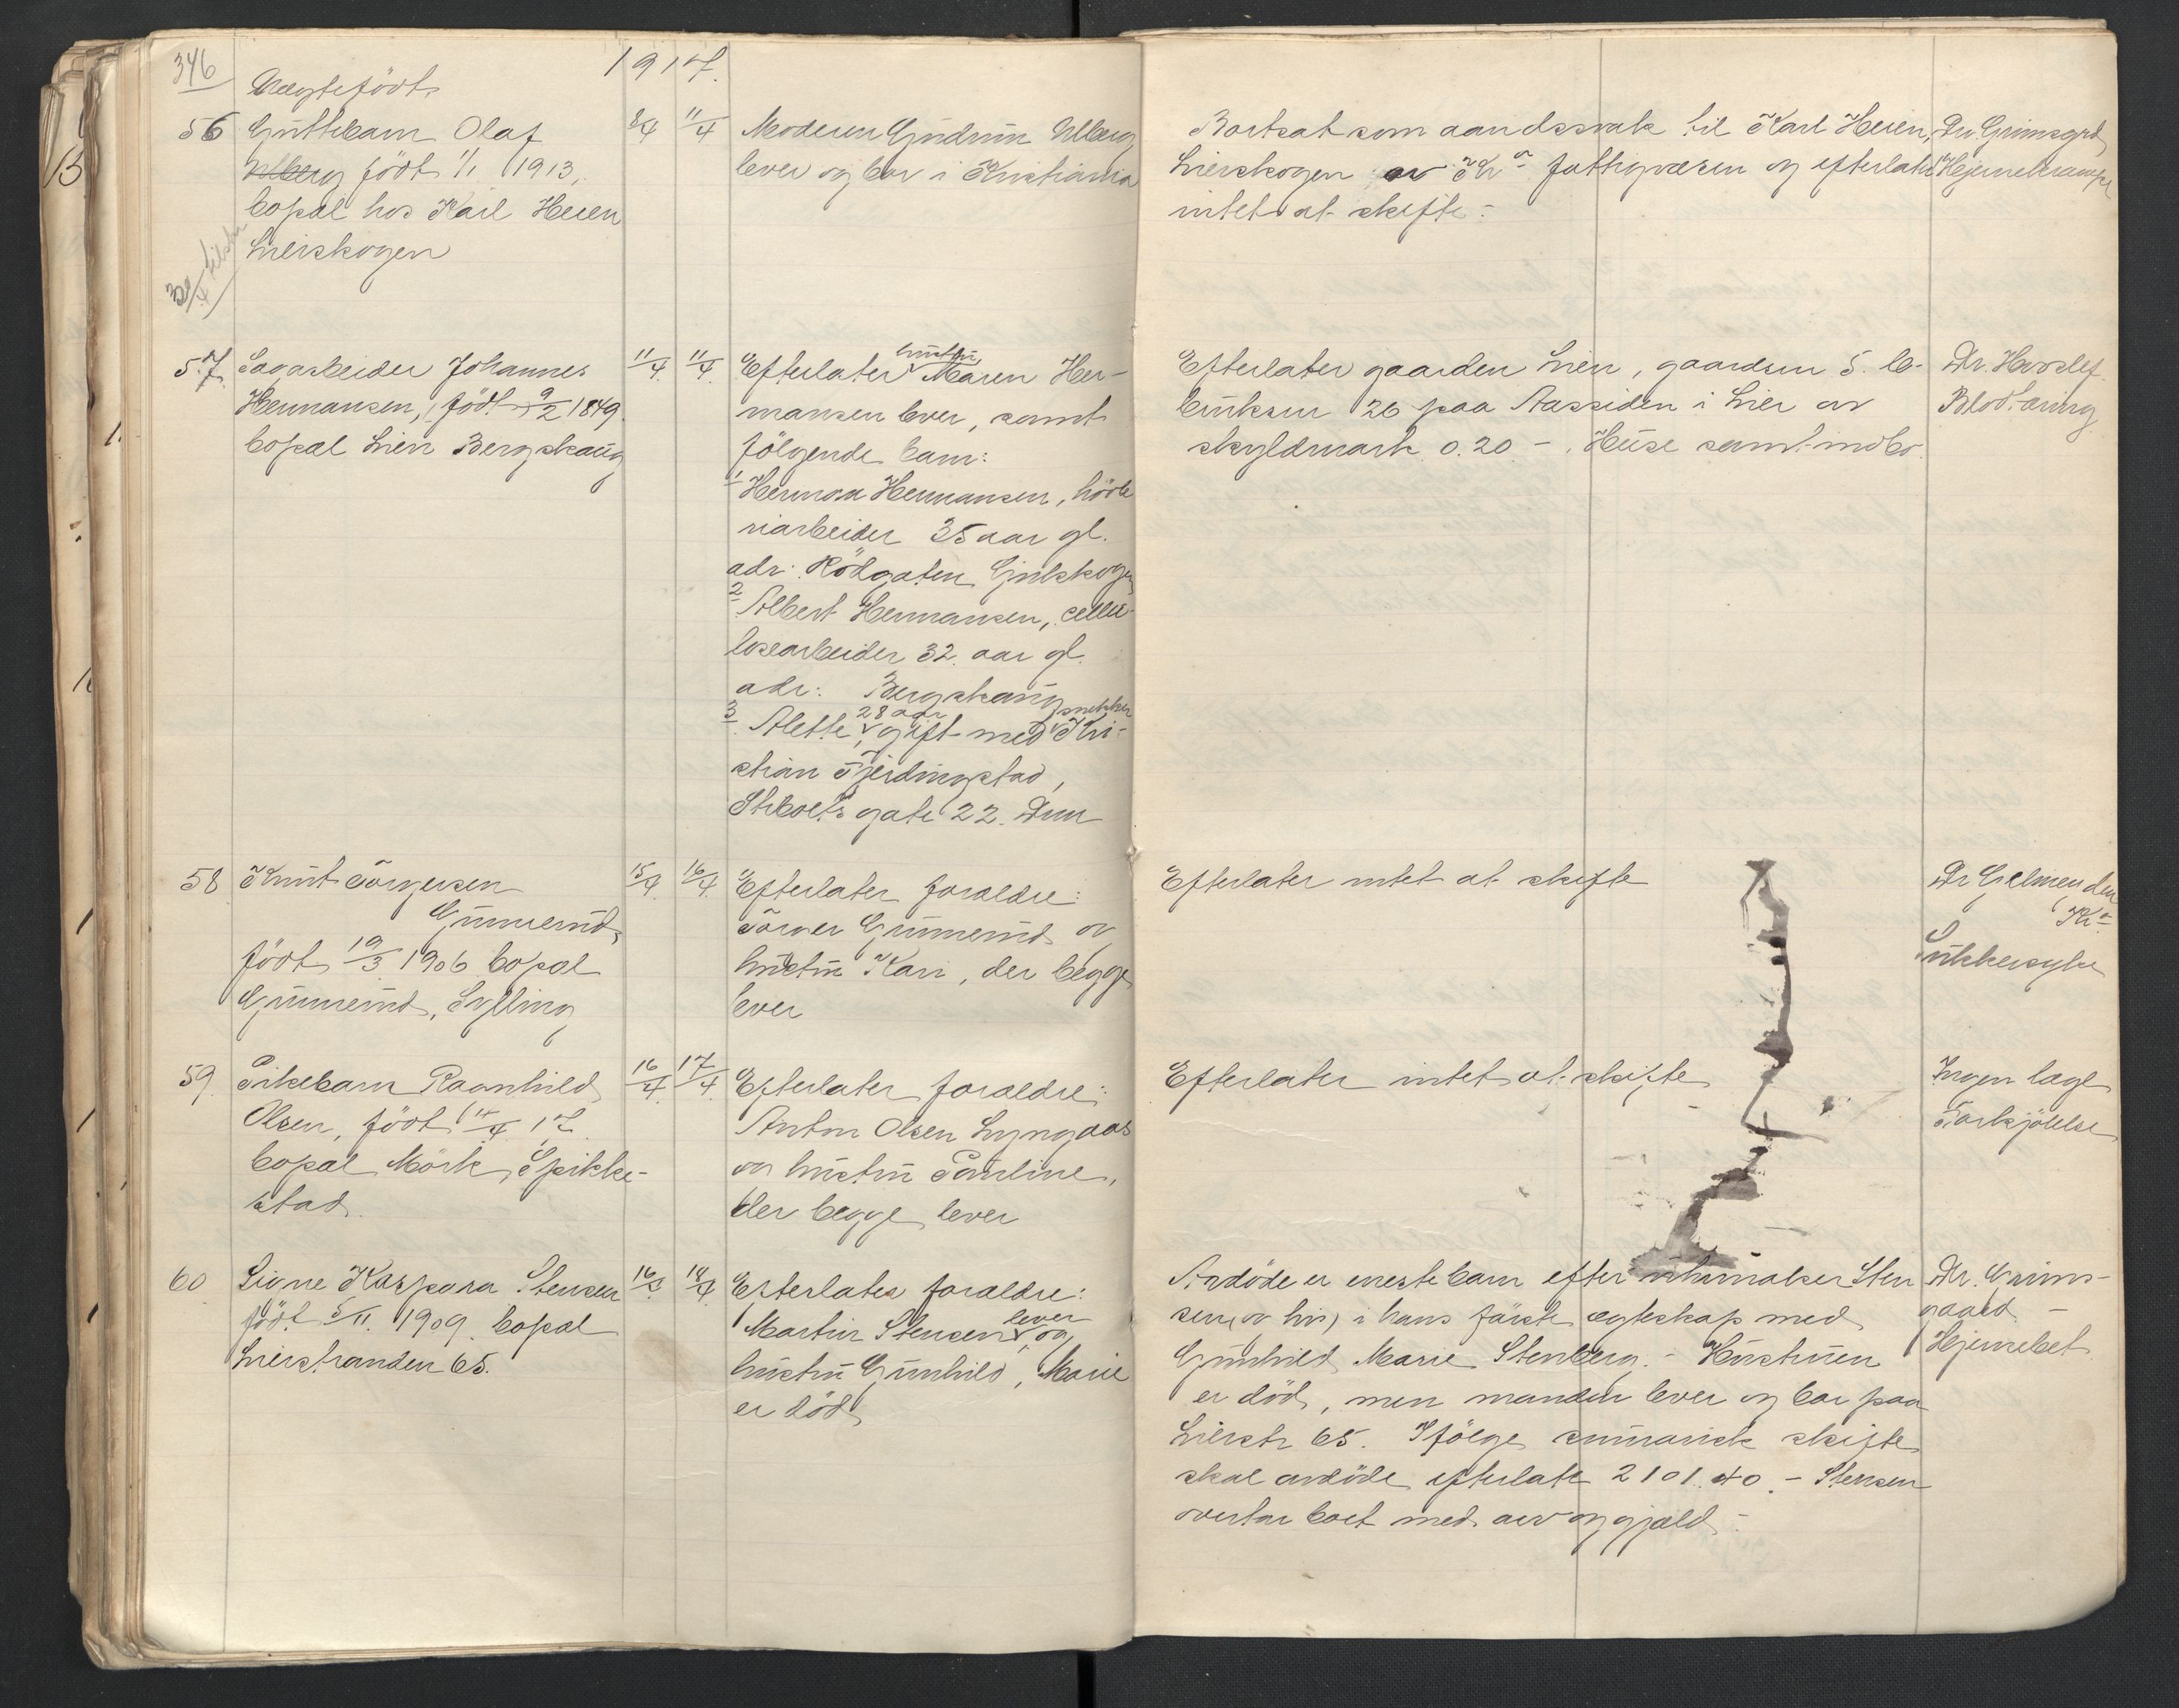 346
1917.
Uegtefödt
56 Guttebarn Olaf
Ulberg födt 1/1 1913,
bopæl hos Karl Heien
Lierskogen
8/4 11/4
Moderen Gudrun Ulberg
lever og bor i Kristiania
Bortsat som aandssvak til Karl Heien,
Lierskogen av Kr a fattigvæsen og efterlater
intet at skifte -
Dr. Grimsgrd
Hjernekrampe
30/4
57. Sagarbeider Johannes
Hermansen, födt 9/2 1849.
bopæl Lien Bergskaug
11/4. 11/4.
Efterlater hustru Maren Her-
mansen lever, samt
følgende barn:
1 Herman Hermansen, hövle
riarbeider 35 aar gl.
adr: Rödgaten Gulskogen
2 Albert Hermansen, cellu-
losearbeider 32 aar gl.
adr: Bergskaug
3. Alette 28 aar, gift med snekker Kri-
stian Fjerdingstad,
Stiboltsgate 22. Drm
Efterlater gaarden Lien, gaardsnr 5. b-
bruksnr 26 paa Aassiden i Lier av
skyldmark 0.20 -. Huse samt indbo.
Dr. Horslef
Blodtæring
58 Knut Törgersen
Gunnerud,
födt 19/3 1906 bopæl
Gunnerud, Sylling
15/4. 16/4.
Efterlater foraldre:
Törger Gunnerud og
hustru Kari, der begge
lever
Efterlater intet at skifte
Dr Gjelmenden
Kr a
Sukkersyke
59. Pikebarn Ragnhild
Olsen, födt 14/4 17
bopæl Mörk, Spikke-
stad.
16/4. 17/4.
Efterlater foraldre:
Anton Olsen Lyngaas
og hustru Pauline,
der begge lever
Efterlater intet at skifte
Ingen læge
Forkjölelse
60. Signe Kaspara Stensen
födt 5/11. 1909. bopæl
Lierstranden 65.
16/4. 18/4
Efterlater foraldre:
Martin Stensen lever, og
hustru Gunhild, Marie
er död
Avdöde er eneste barn efter urmaker Sten
sen, og hu, i hans förste ægteskap med
Gunhild Marie Stenberg. - Hustruen
er död, men manden lever og bor paa
Lierstr 65. Ifölge sumarisk skifte
skal avdöde efterlate 2101.40. - Stensen
overtar boet med arv og gjæld -
Dr. Grims-
gaard -
Hjernebet.